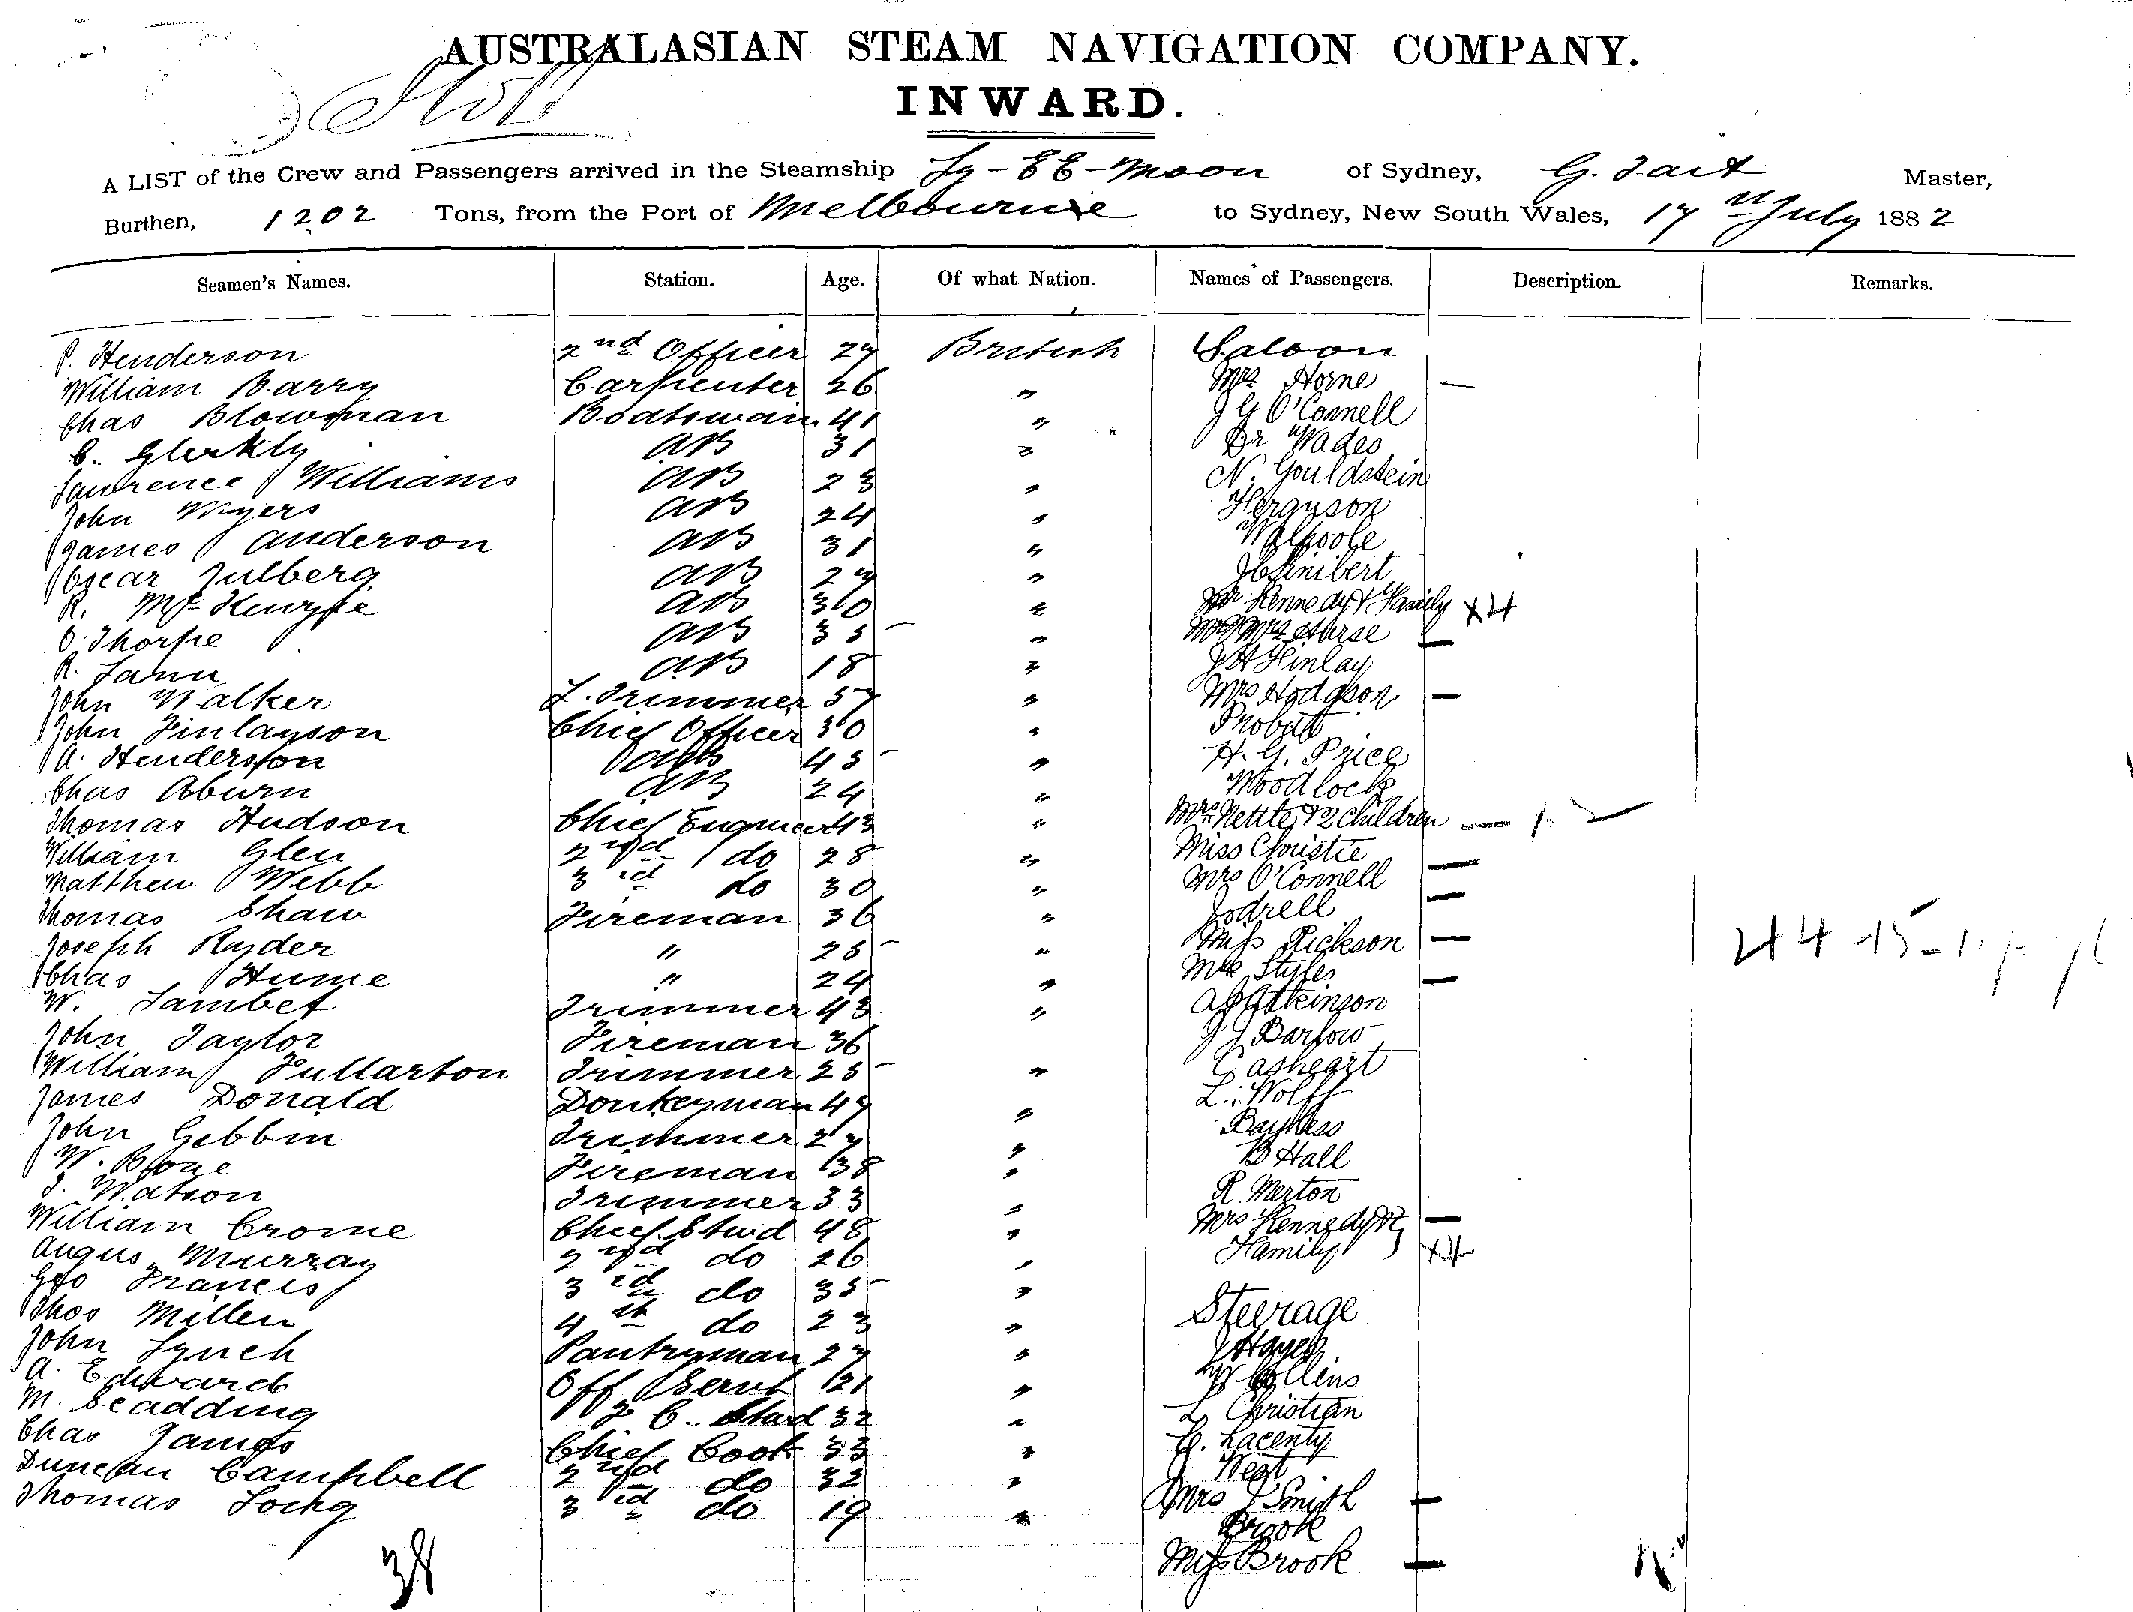 AUSTRALASIAN STEAM NAVIGATION COMPANY.
INWARD.
A LIST of the Crew and Passengers arrived in the Steamship Ly-EE-Moon of Sydney, G. Tait Master,
Burthen, 1202 Tons, from the Port of Melbourne to Sydney, New South Wales, 17th July 1882
Seamen's Names. Station. Age. Of what Nation. Names of Passengers. Description. Remarks.
P. Henderson 2nd Officer 27 British Saloon
William Barry Carpenter 26 " Mrs Horne —
Chas Blowman Boatswain 41 " J G O'Connell
C. Glerkly AB 31 " Dr Wades
Lawrence Williams AB 23 " N. Gouldstein
John Myers AB 24 " Ferguson
James Anderson AB 31 " Walpole
Oscar Julberg AB 27 "
R. McKenzie AB 30 " Mr Kennedy & Family x4
O. Thorpe AB 35 " Mr & Mrs —
R. AB 18 " J H Finlay
John Walker L. Trimmer 57 " Mrs Hodgson —
John Finlayson Chief Officer 30 "
A. Henderson 45 " H. G. Price
Chas Aburn AB 24 " Woodlock
Thomas Hudson Chief Engineer 43 " Mrs & 2 Children —
William Glen 2nd do 28 " Miss Christie —
Matthew Webb 3rd do 30 " Mrs O'Connell —
Thomas Shaw Fireman 36 " Jodrell
Joseph Ryder " 25 " Miss Rickson —
Chas Hume " 24 " Mrs Styles —
W. Lambet Trimmer 43 " Atkinson
John Taylor Fireman 36 J J Barlow
William Fullarton Trimmer 25 " Casheart
James Donald Donkeyman 47 " L. Wolff
John Gibbin Trimmer 27 " Bayless
W. Fireman 38 " B Hall
J. Watson Trimmer 33 " R. Merton
William Crome Chief Stwd 48 " Mrs Kennedy & —
Angus Murray 2nd do 26 " Family x4
Geo Francis 3rd do 35 " Steerage
Thos Millen 4th do 23 " J Hayes
John Lynch Pantryman 27 " W Collins
A. Edwards Off Servt 21 " L Christian
M. Scadding F C. Stwd 32 " G. Lacenty
Chas James Chief Cook 33 " West
Duncan Campbell 2nd do 32 " Mrs J Smith —
Thomas 3rd do 19 " Brook
38 Miss Brook —